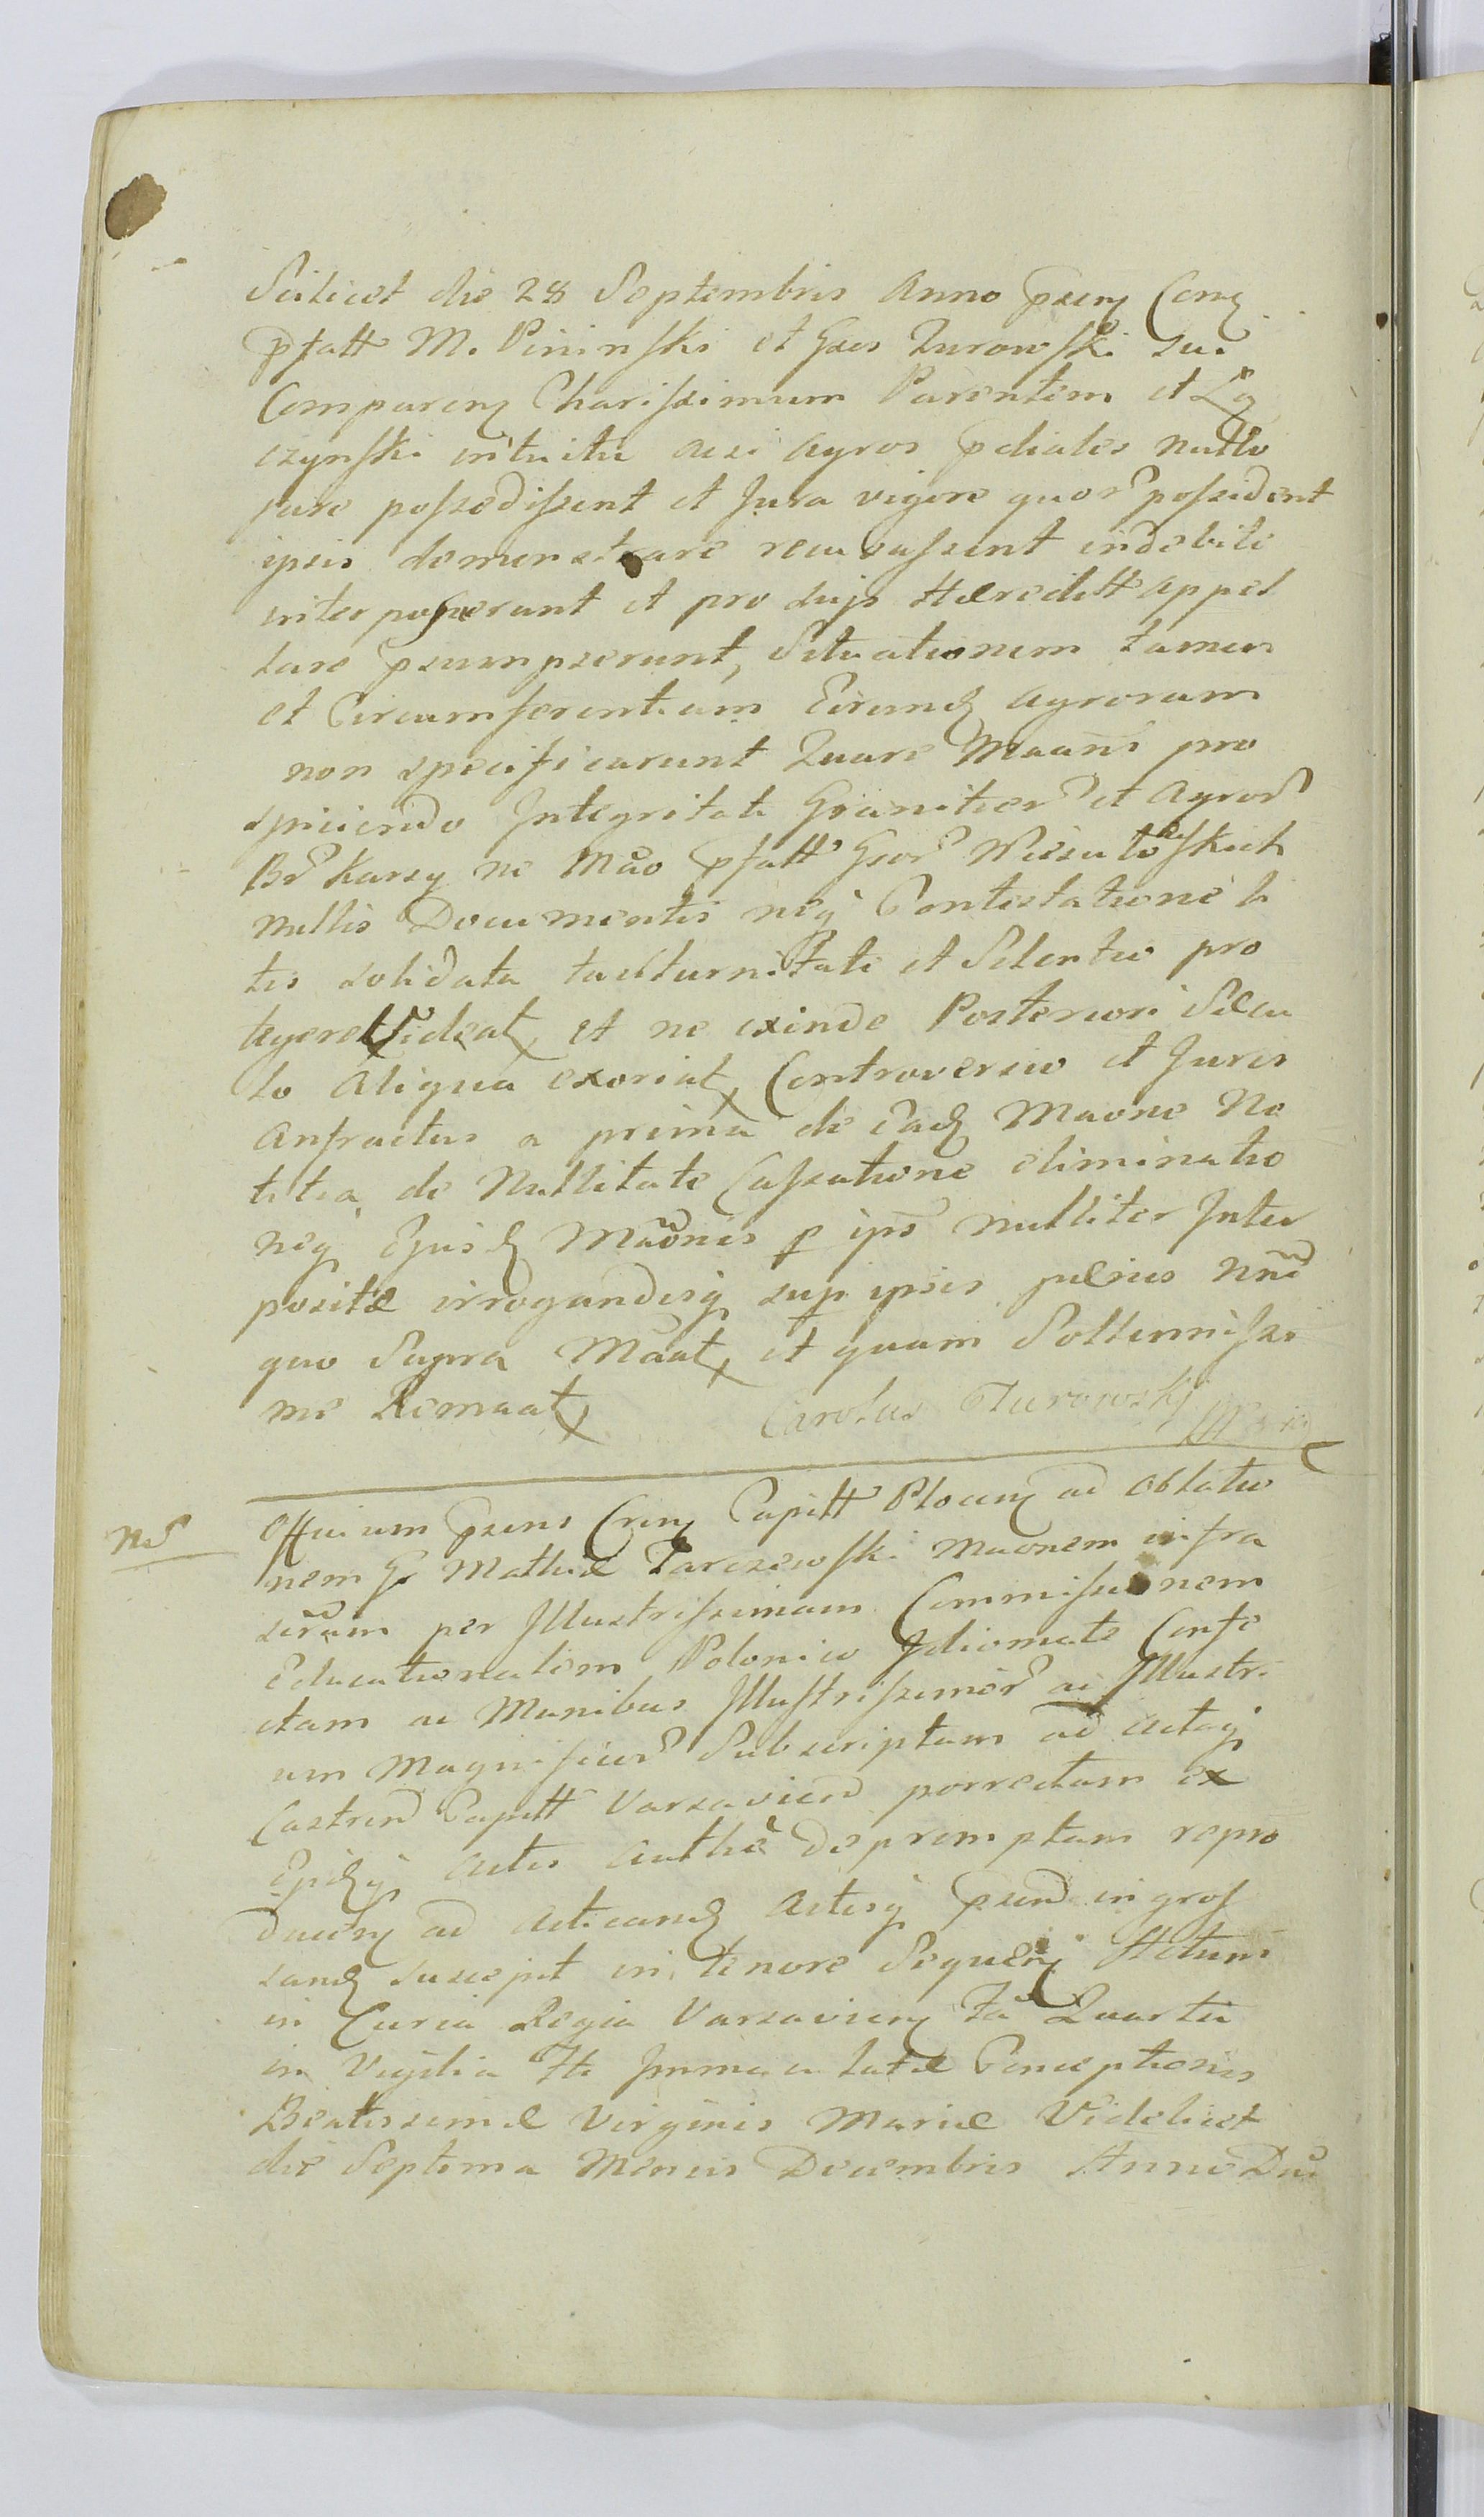 Scilicet die 28 Septembris Anno psen Con
pfatt M. Pininski et Gsos Zurowski sui
Comparen Charissimum Parentem et Łą
czynski intuitu acsi Agros pdiales nullo
jure possedissent et Jura vigore quor possident
ipsis demonstrare recusassent indebite
interposuerunt et pro suis Hæreditt appel
lare psumpserunt, Situationem tamen
et Circumferentiam Eorund Agrorum
non specificarunt Quare Maans pro
spiciendo Integritati Granitier et Agror
Br Karsy ne Mao pfatt Gsor
nullis Documentis neq Contestatione li
tis solidata taciturnitati et Silentio pro
tegeret et ne exinde Posteriori Sæcu
lo Aliqua exoriat Controversio et Juris
Anfractus a prima de Ead Maone No
titia de Nullitate Cassatione eliminatio
neq Ejusd Maonis p ips nulliter Inter
positæ irrogandisq sup ipsis pænis
quo Supra Maat, et quam Sollennissi
me Remaat
Carolus Zurowski
Officium psens Cren Capitt Plocen ad oblatio
nem G Mathiæ Tarczewski Maonem infra
scram per Illustrissimam Commissionem
Educationalem Polonico Idiomate Confe
ctam ac Manibus Illustrissimor ac Illustri
um Magnificor Subscriptam ad Actaq
Castren Capitt Varsavien porrectam ex
Actis Authe depromptam repro
ducen ad Acticand Actisq psen ingros
sand suscepit in tenore Sequen Actum
in Curia Regia Varsavien fa Quarta
in Vigilia Fti Immaculatæ Conceptionis
Beatissimæ Virginis Mariæ Videlicet
die Septima Mensis Decembris Anno Dni